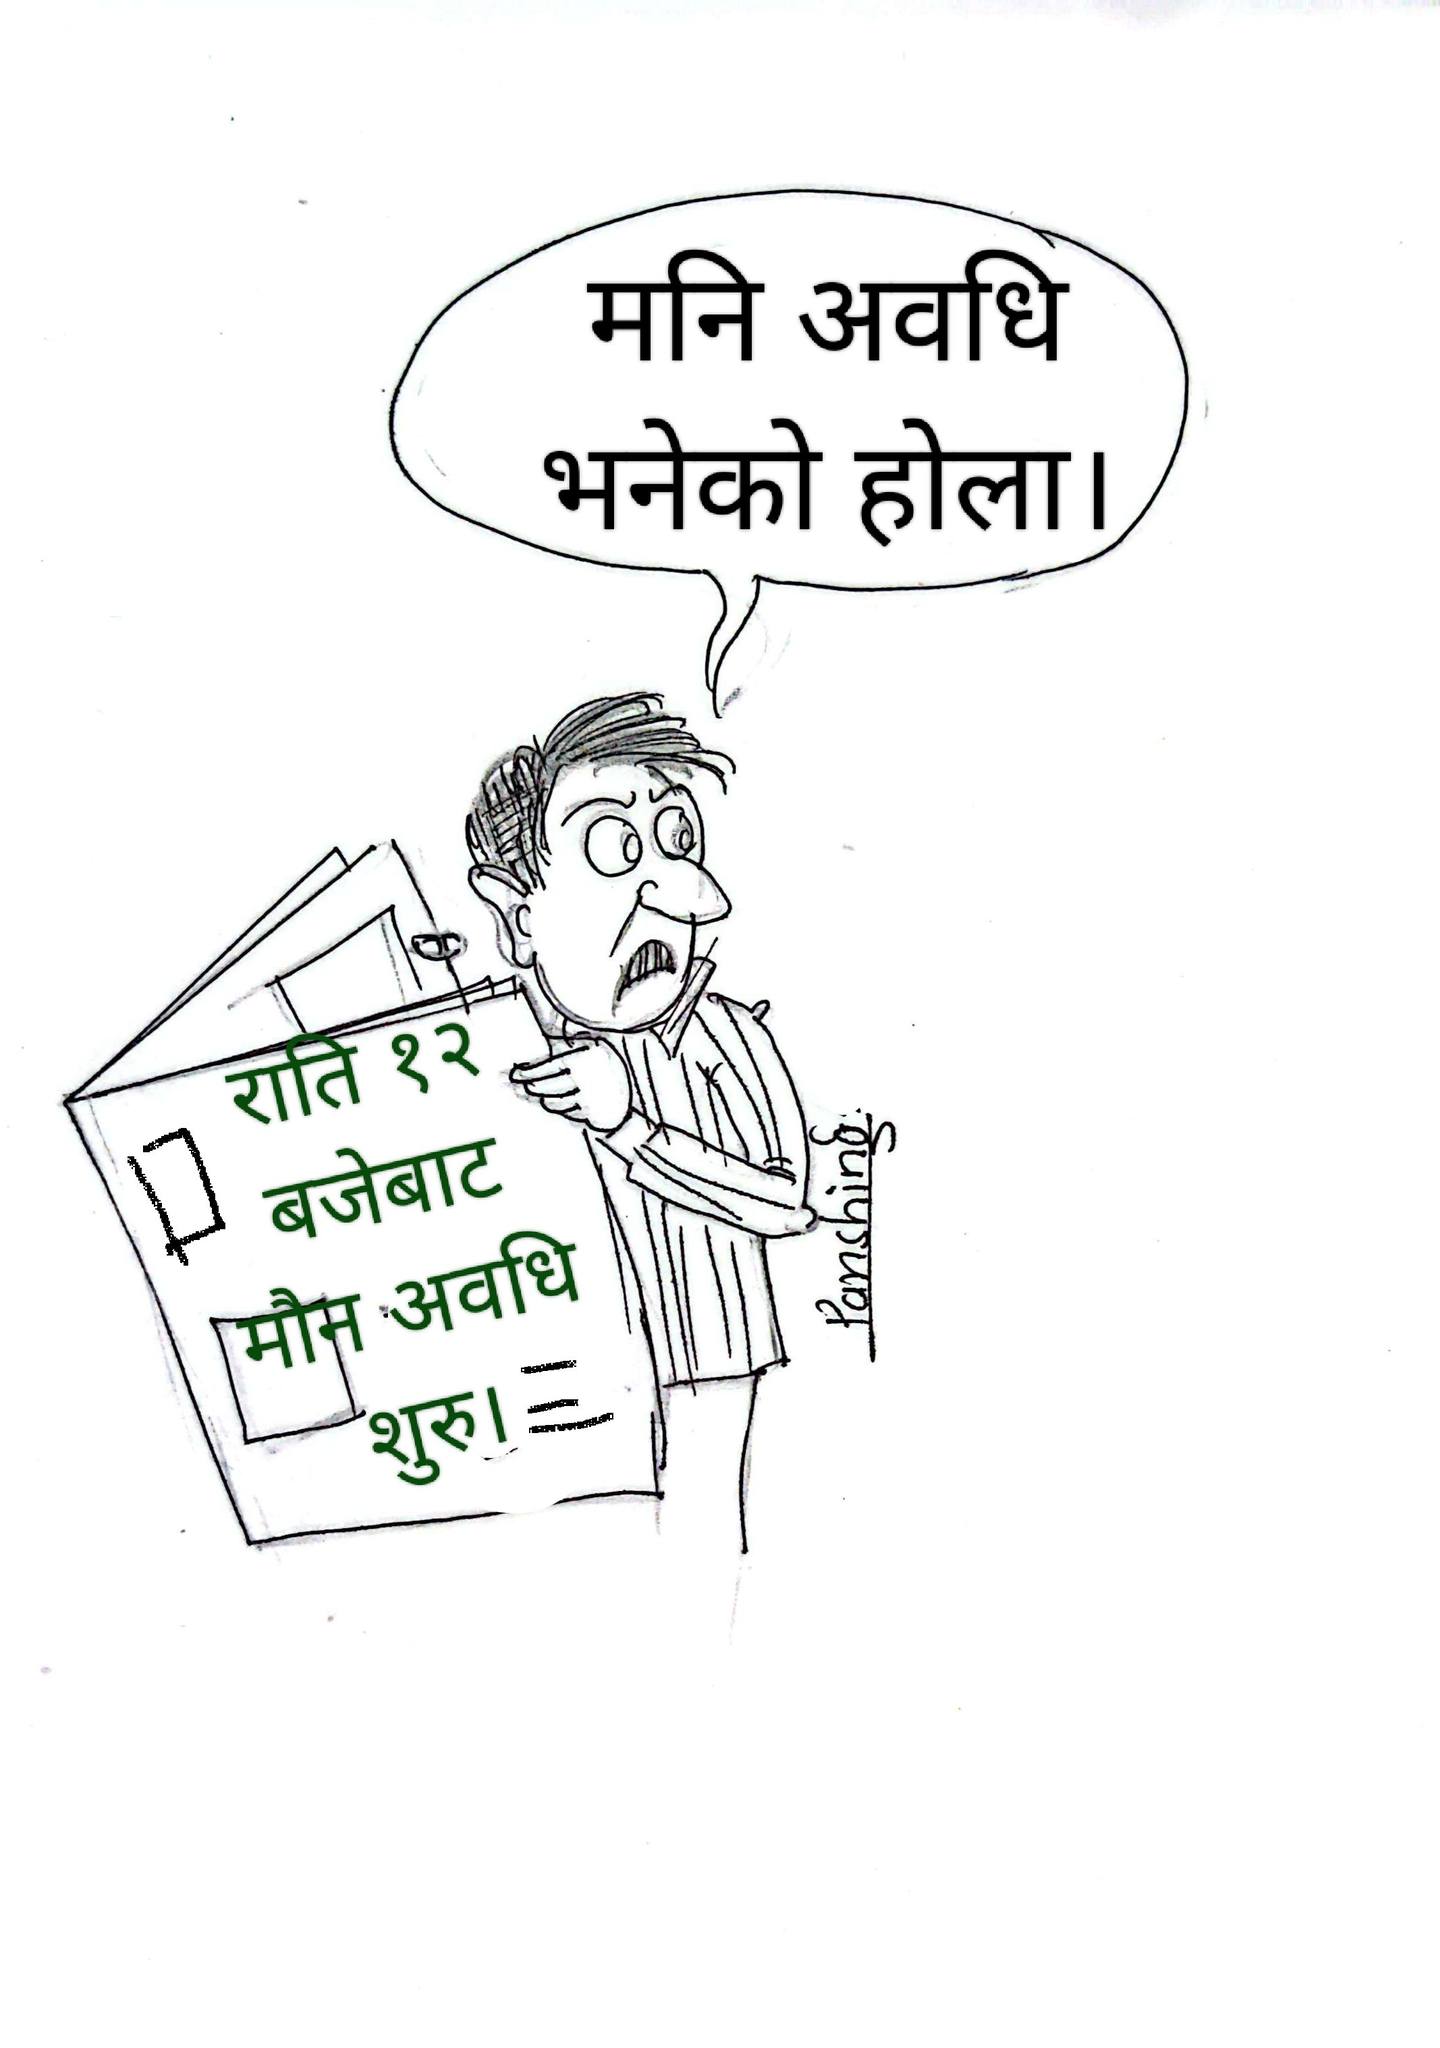 मनि अवधि
भनेको होला।
राति १२
बजेबाट
मौन अवधि
शुरु।
Panshing